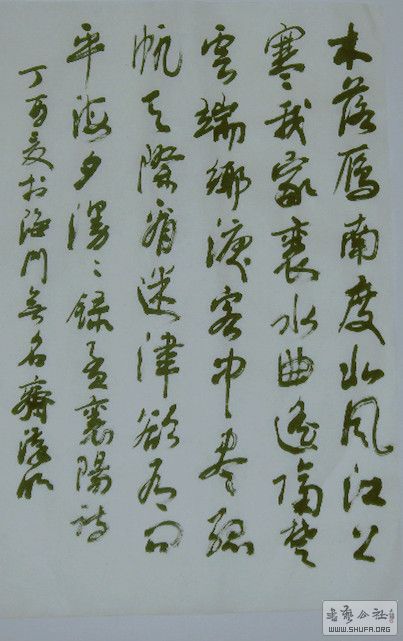 木落雁南度北風江上
寒我家襄水曲遙隔楚
雲端鄉淚客中盡孤
帆天際看迷津欲有問
平海夕漫〻錄孟襄陽詩
丁酉夏於海門無名齋
書藝公社
WWW.SHUFA.ORG